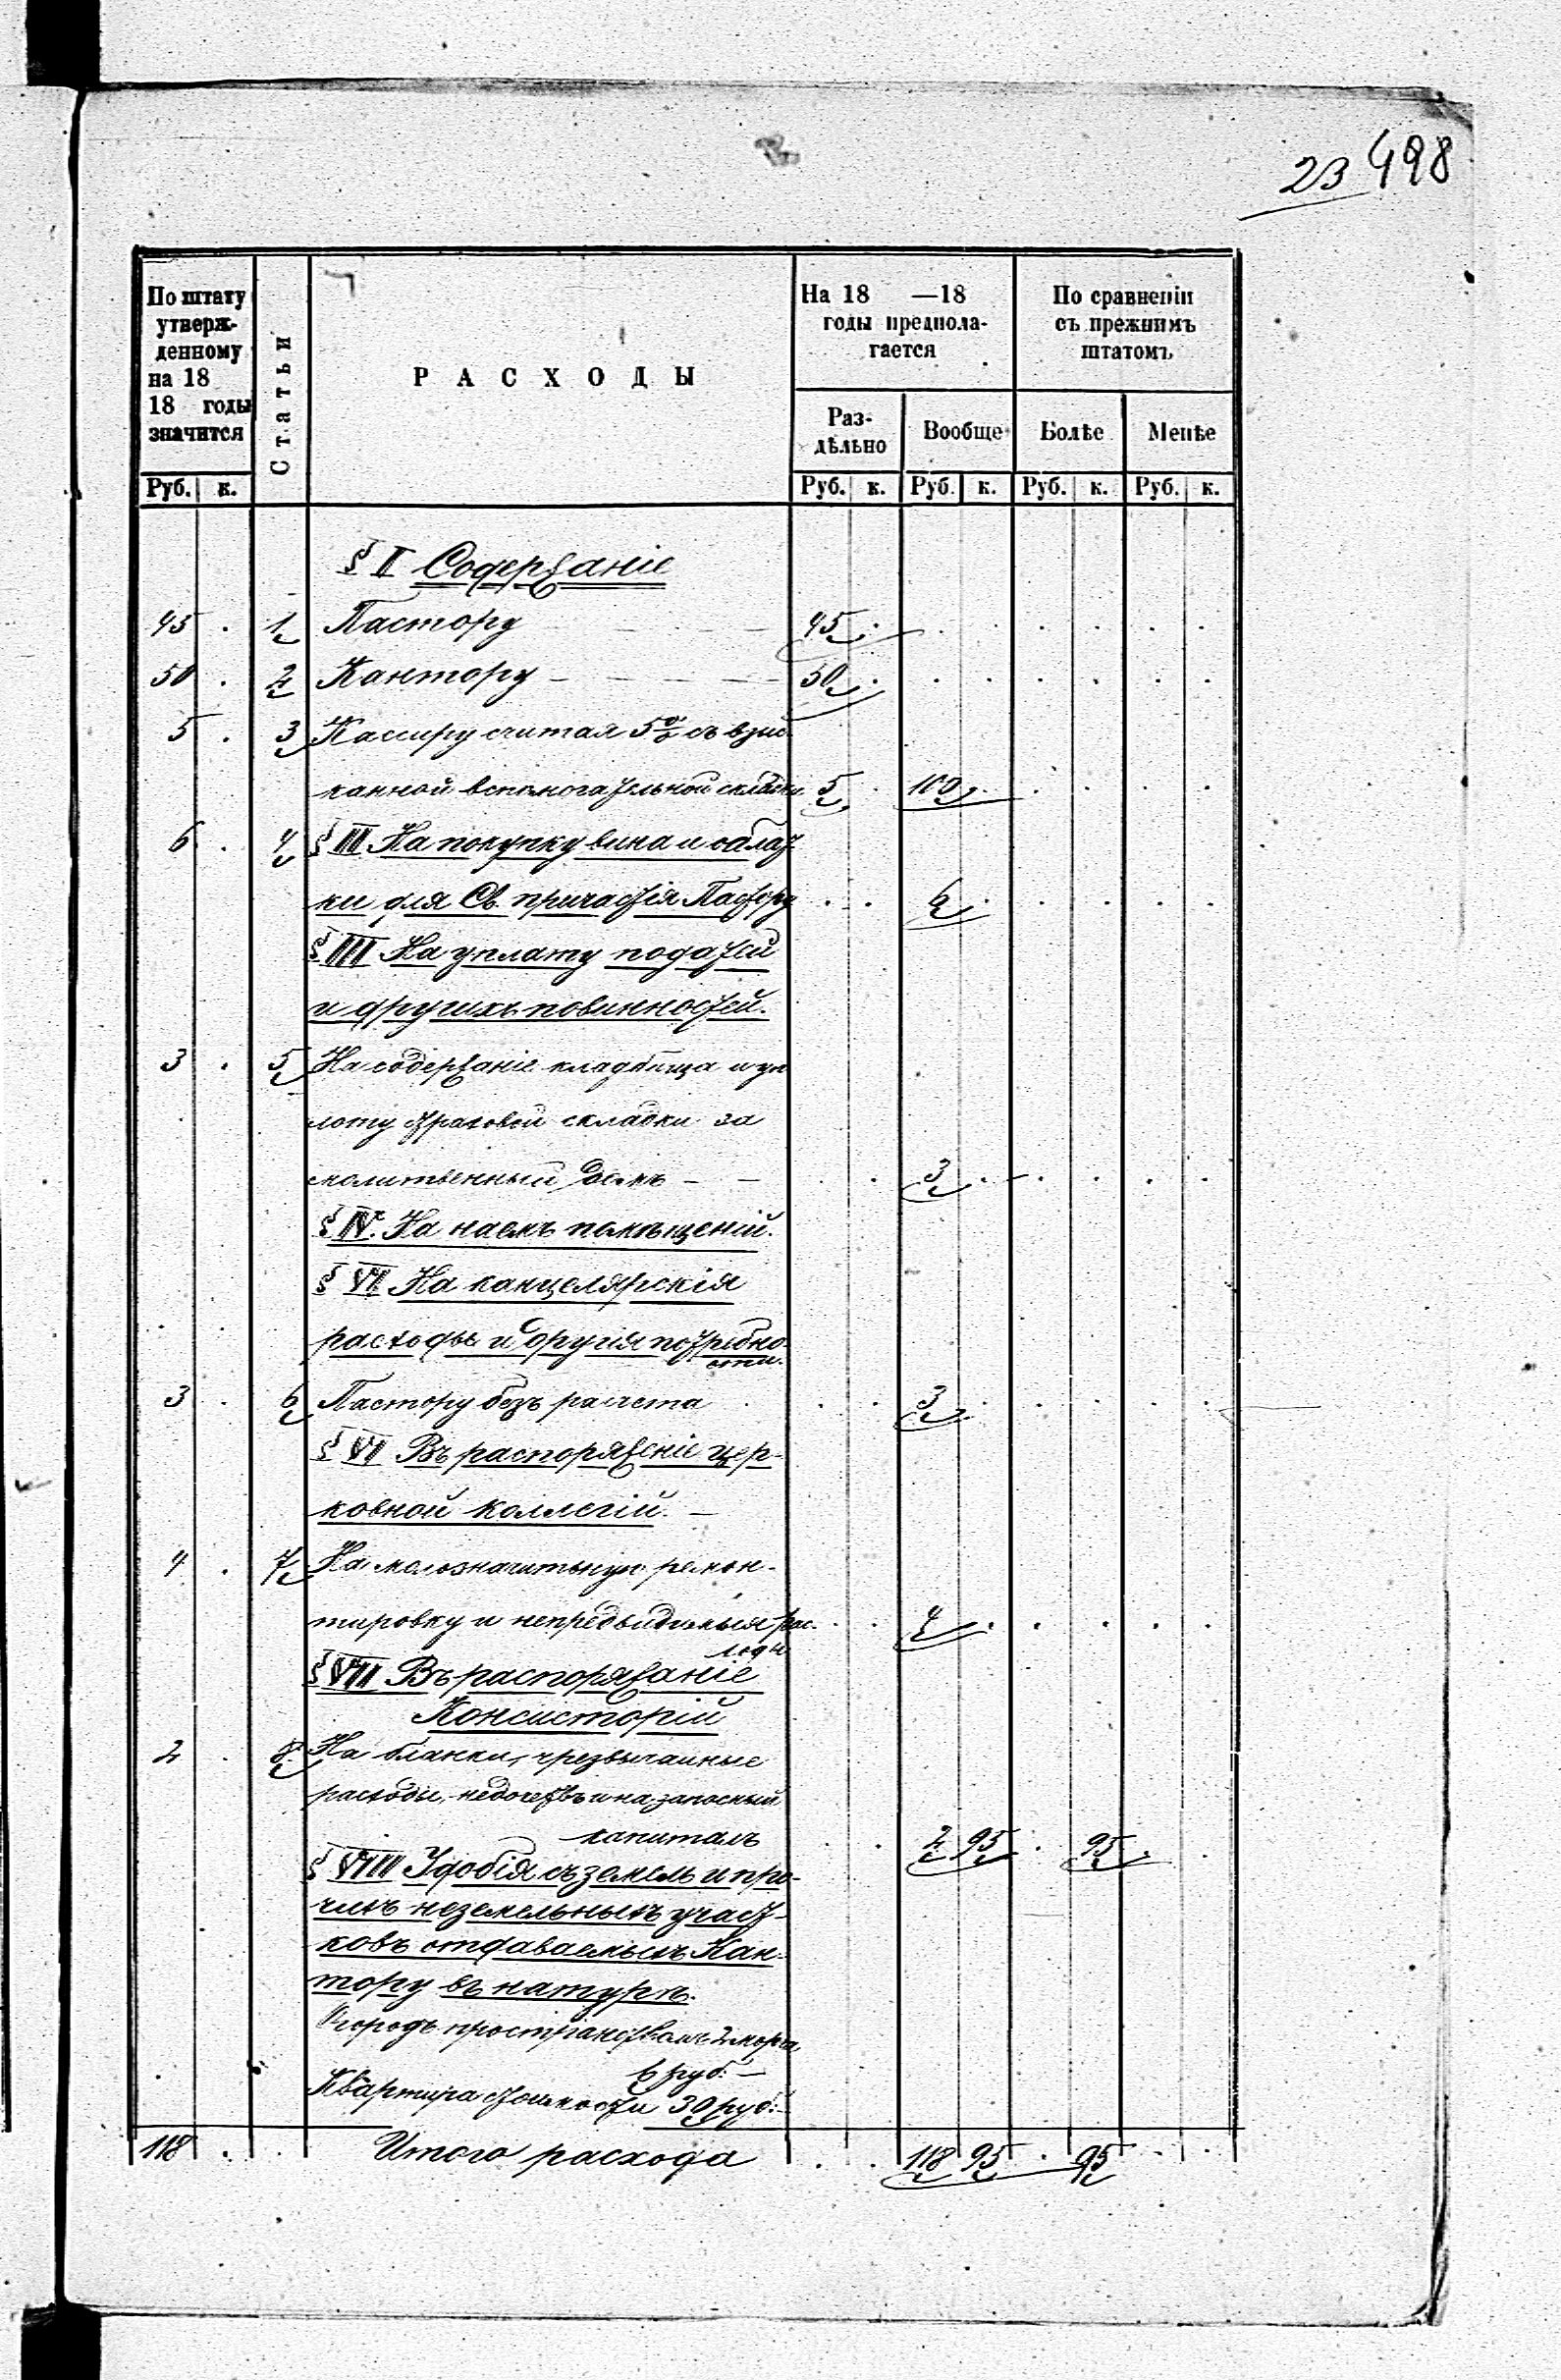 23 498
По штату утверж-денному на 18 18 годы значится
Статьи
РАСХОДЫ
На 18 —18 годы предпола-гается
По сравненіи съ прежнимъ штатомъ
Раз-дѣльно
Вообще
Болѣе
Менѣе
Руб. к. Руб. к. Руб. к. Руб. к. Руб. к.
§ II Содержаніе
45 . 1 Пастору 45 .
50 . 2 Кантору 50 .
5 . 3 Кассиру считая 5% съ взыс-
канной вспомогательной складки 5 . 100 .
6 . 4 § III На покупку вина и облат-
ки для Св. причастія Пастору 6 .
§ III На уплату податей
и другихъ повинностей.
3 . 5 На содержаніе кладбища и уп
лоту страховой складки за
молитвенный домъ 3 .
§ IV. На наемъ помѣщеній.
§ VI На канцелярскія
расходы и другія потребно-
сти.
3 . 6 Пастору безъ расчета 3 .
§ VI Въ распоряженіе цер-
ковной коллегій.
4 . 7 На малозначитьную ремон-
тировку и непредвидимыя рас-
ходы 4 .
§ VII Въ распоряжаніе
Консисторій
2 . 8. На бланки, чрезвычаиные
расходы, недочетъ и на запосный
капиталъ 2 95 . 95 .
§ VIII Удобія съ земель и про-
чихъ неземельныхъ участ-
ковъ отдаваемыхъ Кан-
тору въ натурѣ.
Огородъ пространствомъ 2 морга
6 руб.
Квартира стоимости 30 руб.
118 . Итого расхода 118 95 . 95